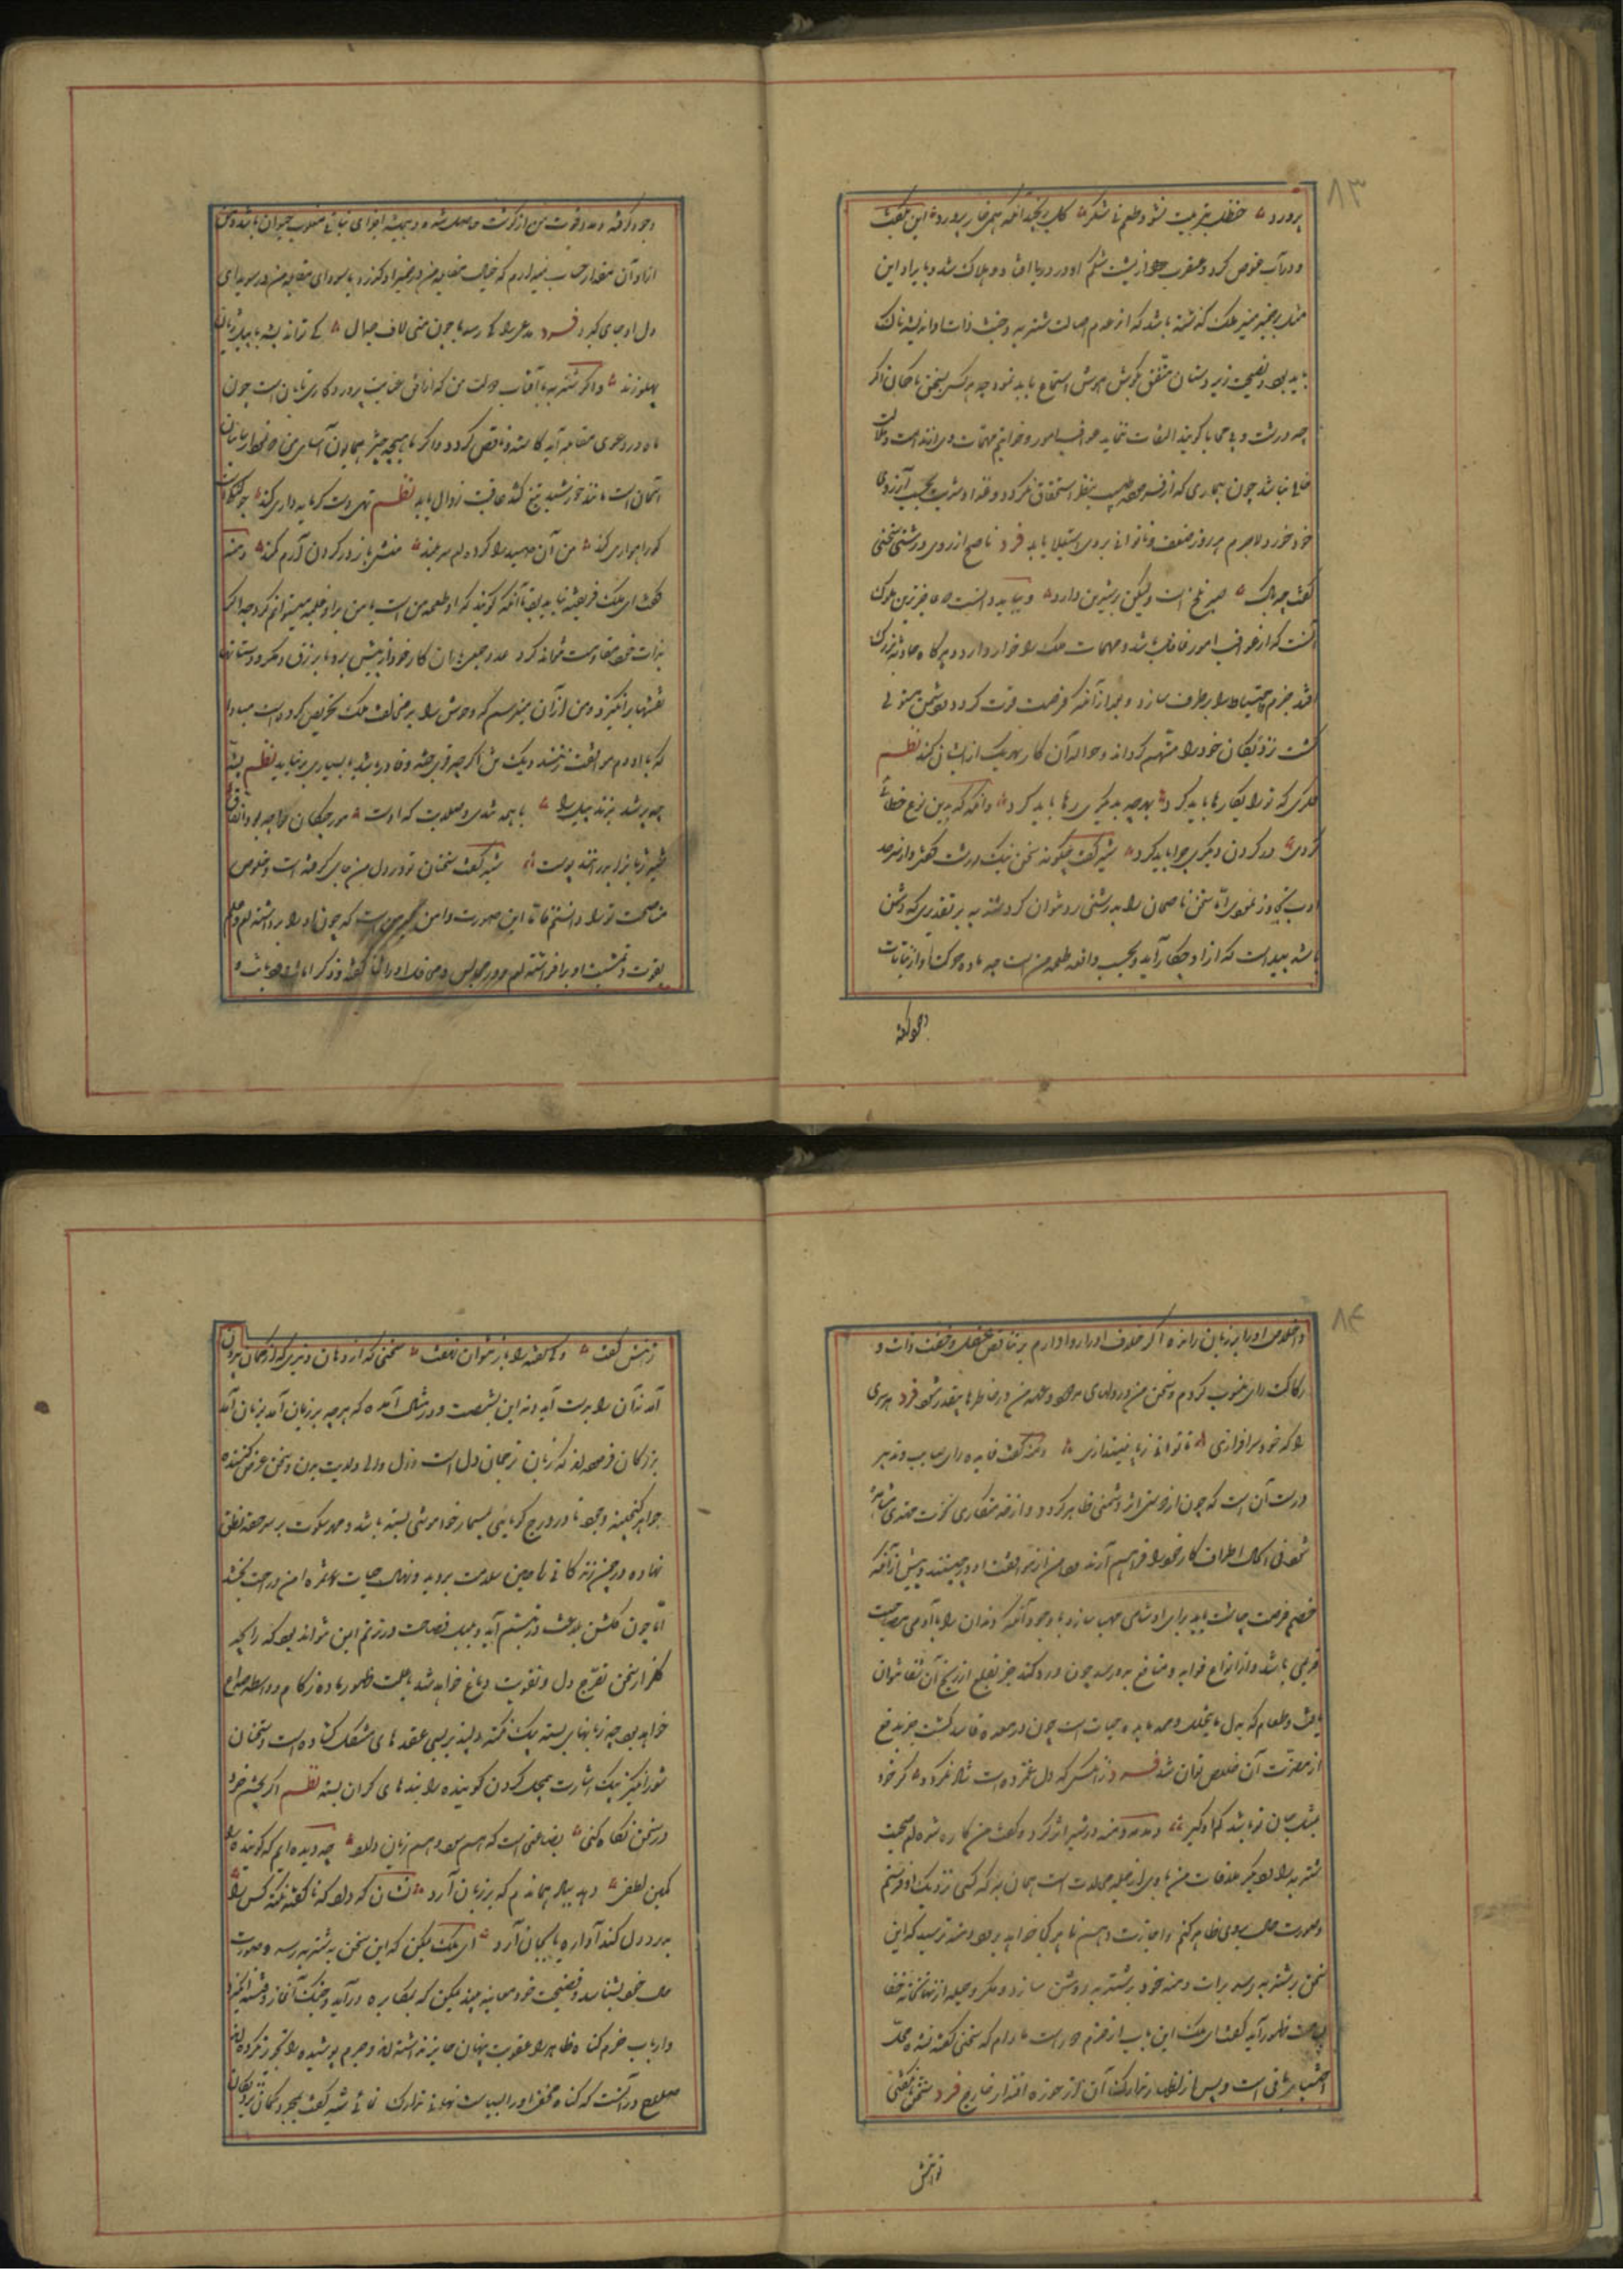 ۸۳
پرورد حنظل بتربیت نشود طعم نی شکر گل برنچید آنکه همی خار پرورد این بگفت
و در آب غوص کرد و عقرب از پشت سنگ او در دریا افتاد و هلاک شد و با یراد این
مثل بر ضمیر منیر ملک که شته باشد که از عدم اصالت شنزبه و خبث ذات او اندیشه ناک
باید بود و نصیحت زیردستان مشفق بگوش هوش استماع باید نمود چه هر کس بسخن ناصحان اگر
چه درشت و بی محابا گویند التفات ننماید عواقب امور و خواتم مهمات وی از ندامت و ملالت
خالی نباشد چون بیماری که از فرموده طبیب بنظر استخفاف نگرد و غذا و شربت بحسب آرزوی
خود خورد لاجرم هر روز ضعف و ناتوانی بر وی استیلا یابد فرد ناصح از روی درشتی سخنی
گفت چه باک صبر تلخ است ولیکن بر شیرین دارد و بباید دانست که عاجزترین ملوک
آنست که از عواقب امور غافل باشد و مهمات ملک را خوار دارد و هر گاه حادثه بزرگ
افتد حزم و احتیاط را بر طرف سازد و بعد از آنکه فرصت فوت گردد و دشمن مستولی
گشت نزدیکان خود را متهم گرداند و حواله آن کار بهر یک از ایشان کند نظم
مکری که ترا بکارها باید کرد بهر چه بدیگری رها باید کرد وانگه که بدین نوع خطائی
کردی در گردن دیگری چرا باید کرد شیر گفت چگونه سخن نیک درشت گفتی و از سر حد
ادب تجاوز نمودی اما سخن ناصحان را بدرشتی رد نتوان کرد شنزبه بر تقدیری که دشمن
باشد پیداست که از او چه کار آید و بحسب واقعه طعمه من است چه ماده حرکت او از نباتات
وجود گرفته
وجود گرفته و مدد قوت من از گوشت حاصل شده و همیشه اجزای نباتی مغلوب حیوان باشد و من
از او آن مقدار حساب نمیدارم که خیال مقابله من در ضمیر او گذرد یا سودای مقاتله من در سویدای
دل او جای گیرد فرد مدعی را کی رسد با چون منی لاف جدال کی تواند پشه با پیل دمان
پهلو زند و اگر شنزبه با آفتاب دولت من که از افق عنایت پروردگاری تابان است چون
ماه در دعوی مقابله آید کاسته و ناقص گردد و اگر با همچه چتر همایون آسای من
است مانند خورشید تیغ کشد عاقبت زوال یابد نظم تهی دست گر مایه داری کند چو
گو راهواری کند من آن صید را کرده ام سر بلند منش باز در گردن آرم کمند دمنه
گفت ای ملک فریفته نباید بود بآنکه گویند که او طعمه من است یا من بر او غلبه میتوانم کرد چه اگر
بذات خود مقاومت نتواند کرد بمدد جمعی یاران کار خود از پیش برد و یا بزرق و مکر و دستان
نقشها برانگیزد و من از آن میترسم که وحوش را بر مخالفت ملک تحریص کرده است مبادا
که با او در موافقت زنند و یک تن اگر چه قوی جثه و قادر باشد با بسیاری بر نیاید نظم پشه
چو پر شد بزند پیل را با همه تندی و صلابت که اوست مورچگان را چو بود اتفاق
شیر ژیان را بدرانند پوست شیر گفت سخنان تو در دل من جای گرفته است و خلوص
مناصحت ترا دانستم فاما این صورت دامن گیر من است که چون او را برداشته ام و علم
بقوت و تمشیت او برافراشته ام و در مجالس و محافل او را ثنا گفته و ذکر امانت و دیانت و
۸۴
و اخلاص او را بر زبان رانده اگر خلاف او را روا دارم بر تناقض عقل و خفت ذات و
رکاکت رای منسوب گردم و سخن من در دلهای مردم و عهد من در خاطرها بیقدر شود فرد هر سری
را که خود برافرازی تا توانی ز پا نیندازی دمنه گفت فایده رای صایب و تدبیر
درست آن است که چون از دوستی اثر دشمنی ظاهر گردد و از خدمتکاری نخوت مهتری مشاهده
شود فی الحال اطراف کار خود را فراهم آرند و دامن از موافقت او در چینند و پیش از آنکه
خصم فرصت چاشت یابد برای او شامی مهیا سازد با وجود آنکه دندان را با آدمی مصاحبت
قدیمی باشد و از او انواع فواید و منافع بدو رسد چون درد کند جز بقلع از رنج آن شفا نتوان
یافت و طعام که بدل ما یتحلل و ممد ماده حیات است چون در معده فاسد گشت جز بدفع
از مضرت آن خلاص نتوان شد فرد زانکس که دل بردتست شاد نگردد گر خود
بمثل جان تو باشد کم او گیر دمدمه دمنه در شیر اثر کرد و گفت من کاره شده ام صحبت
شنزبه را و دیگر ملاقات من با وی از جمله محالات است همان به که کسی نزدیک او فرستم
و صورت حال بر وی ظاهر کنم و اجازت دهم تا هر کجا خواهد برود دمنه ترسید که این
سخن بشنزبه رسد برات ذمه خود بر شنزبه روشن سازد و مکر و حیله از نهانخانه خفا
بساحت ظهور آید گفت ای ملک این باب از حزم دور است مادام که سخن گفته نشده محل
اختیار باقی است و پس از اظهار تدارک آن از حوزه اقتدار خارج فرد سخن ناگفتی
توانش
توانش گفت ولی گفته را باز نتوان نهفت سخنی که از دهان و تیری که از کمان بیرون
آمد نه آن را بدست آید و نه این بشست و در مثال آمده که هر چه بر زبان آمد بزیان آمد
بزرگان فرموده اند که زبان ترجمان دل است و دل والی ولایت بدن و سخن عرض کننده
جواهر گنجینه وجود تا در درج گویایی بمسمار خاموشی بسته باشد و مهر سکوت بر سر حقه نطق
نهاده در چمن زندگانی ریاحین سلامت بروید و نهال حیات ثمره امن و راحت بخشد
اما چون گلشن بلاغت در تبسم آید و بلبل فصاحت در ترنم ایمن نتواند بود که رایحه
گلزار سخن تفرج دل و تقویت دماغ خواهد شد یا علت ظهور ماده زکام و واسطه صداع
خواهد بود چه زبانهای بسته یک نکته دلپذیر بسی عقدهای مشکل گشاده است و سخنان
شورانگیز بیک اشارت مهلک گردن گوینده را بندهای گران بسته نظم اگر بچشم خرد
در سخن نگاه کنی بضاعتی است که هم سود و هم زیان دارد چه دیده ایم که گوینده را
کمین لطفی دهد بباد هماندم که بر زبان آرد نشان که داد که ناگفته نکته کس را
بدرد دل کند آواره یا بجان آرد ای ملک یمکن که این سخن بشنزبه رسد و صورت
حال خود بشناسد و فضیحت خود معاینه بیند ممکن که بمکابره درآید و جنگ آغاز و فتنه انگیزد
و ارباب حزم گناه ظاهر را عقوبت پنهان جایز نداشته اند و جرم پوشیده را تجویز نکرده اند
صلاح در آنست که گناه مخفی او را بسیاست نهانی تدارک نمائی شیر گفت بمجرد گمان نزدیکان